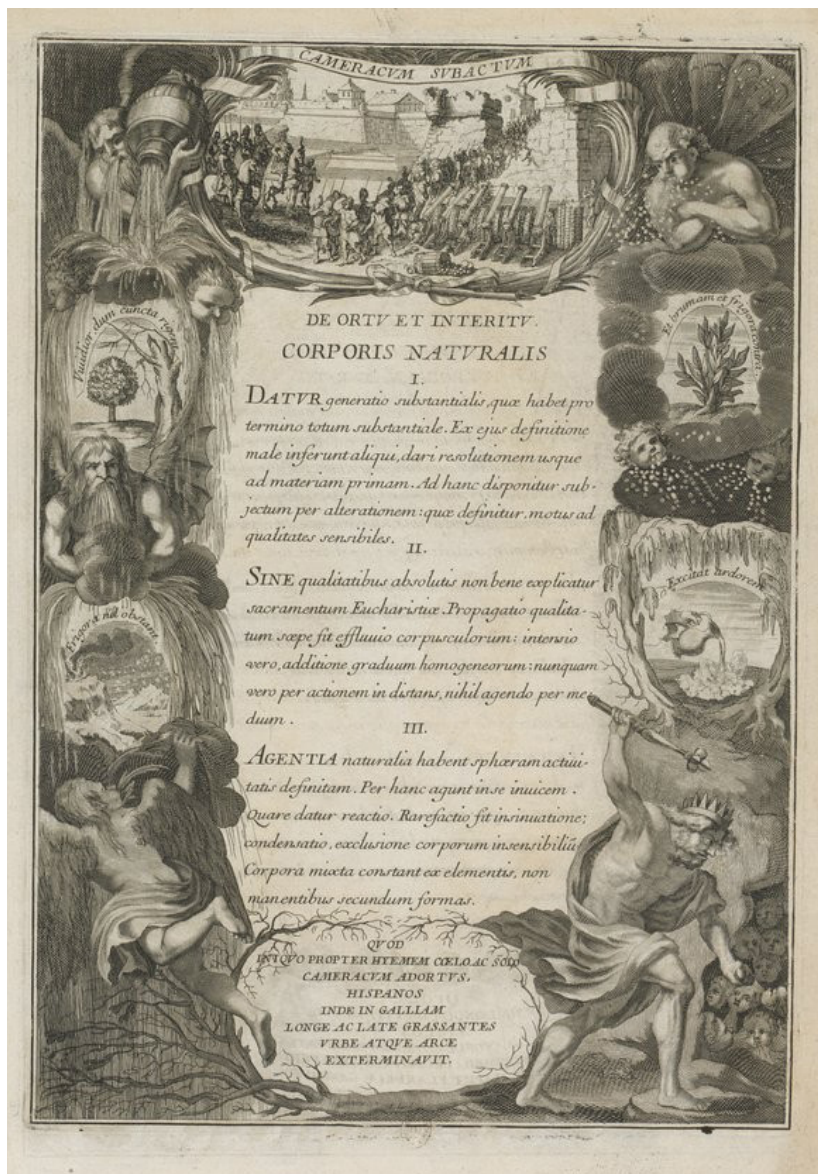 CAMERACVM SVBACTVM
Viridior dum cuncta rigent
Et brumam et frigora contra
Frigora nil obstant
Excitat ardorem
DE ORTV ET INTERITV.
CORPORIS NATVRALIS
I.
DATVR generatio substantialis, quæ habet pro
termino totum substantiale. Ex ejus definitione
male inferunt aliqui, dari resolutionem usque
ad materiam primam. Ad hanc disponitur sub-
jectum per alterationem: quæ definitur, motus ad
qualitates sensibiles.
II.
SINE qualitatibus absolutis non bene explicatur
sacramentum Eucharistiæ. Propagatio qualita-
tum sæpe fit effluuio corpusculorum: intensio
vero, additione graduum homogeneorum: nunquam
vero per actionem in distans, nihil agendo per me
dium.
III.
AGENTIA naturalia habent sphæram actiui-
tatis definitam. Per hanc agunt in se inuicem.
Quare datur reactio. Rarefactio fit insinuatione;
condensatio, exclusione corporum insensibiliũ
Corpora mixta constant ex elementis, non
manentibus secundum formas.
QVOD
INIQVO PROPTER HYEMEM CŒLO AC SOLO
CAMERACVM ADORTVS,
HISPANOS
INDE IN GALLIAM
LONGE AC LATE GRASSANTES
VRBE ATQVE ARCE
EXTERMINAVIT.